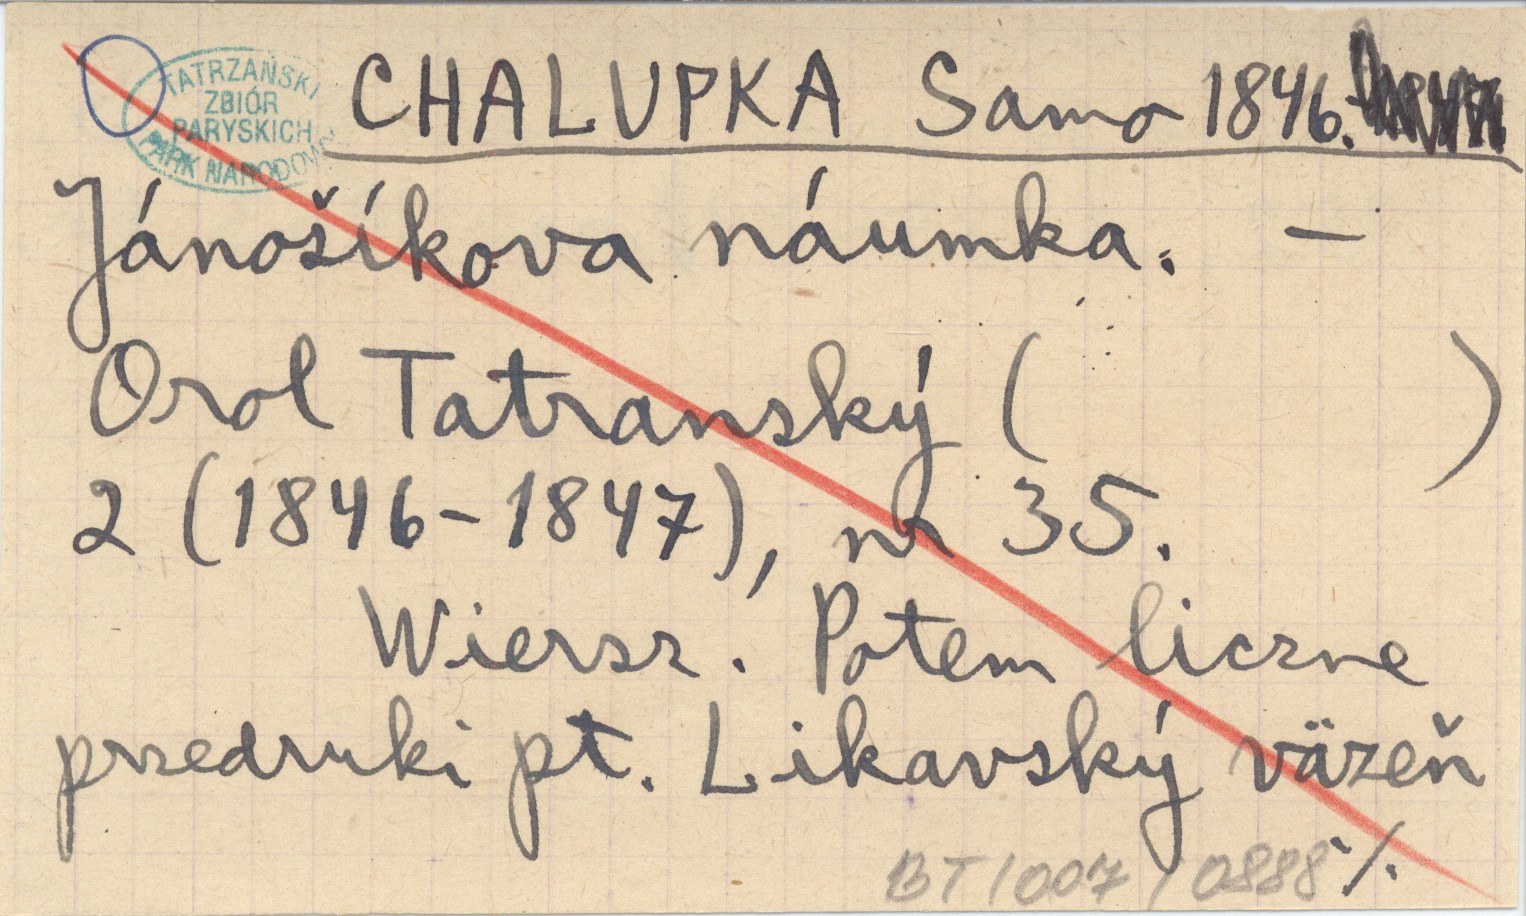 TATRZAŃSKI
ZBIÓR
PARYSKICH
PARK NARODOWY
CHALUPKA Samo 1846.
Jánošíkova náumka. —
Orol Tatranský ( )
2 (1846-1847), nr 35.
Wiersz. Potem liczne
przedruki pt. Likavský väzeň
BT/007/0888 ./.